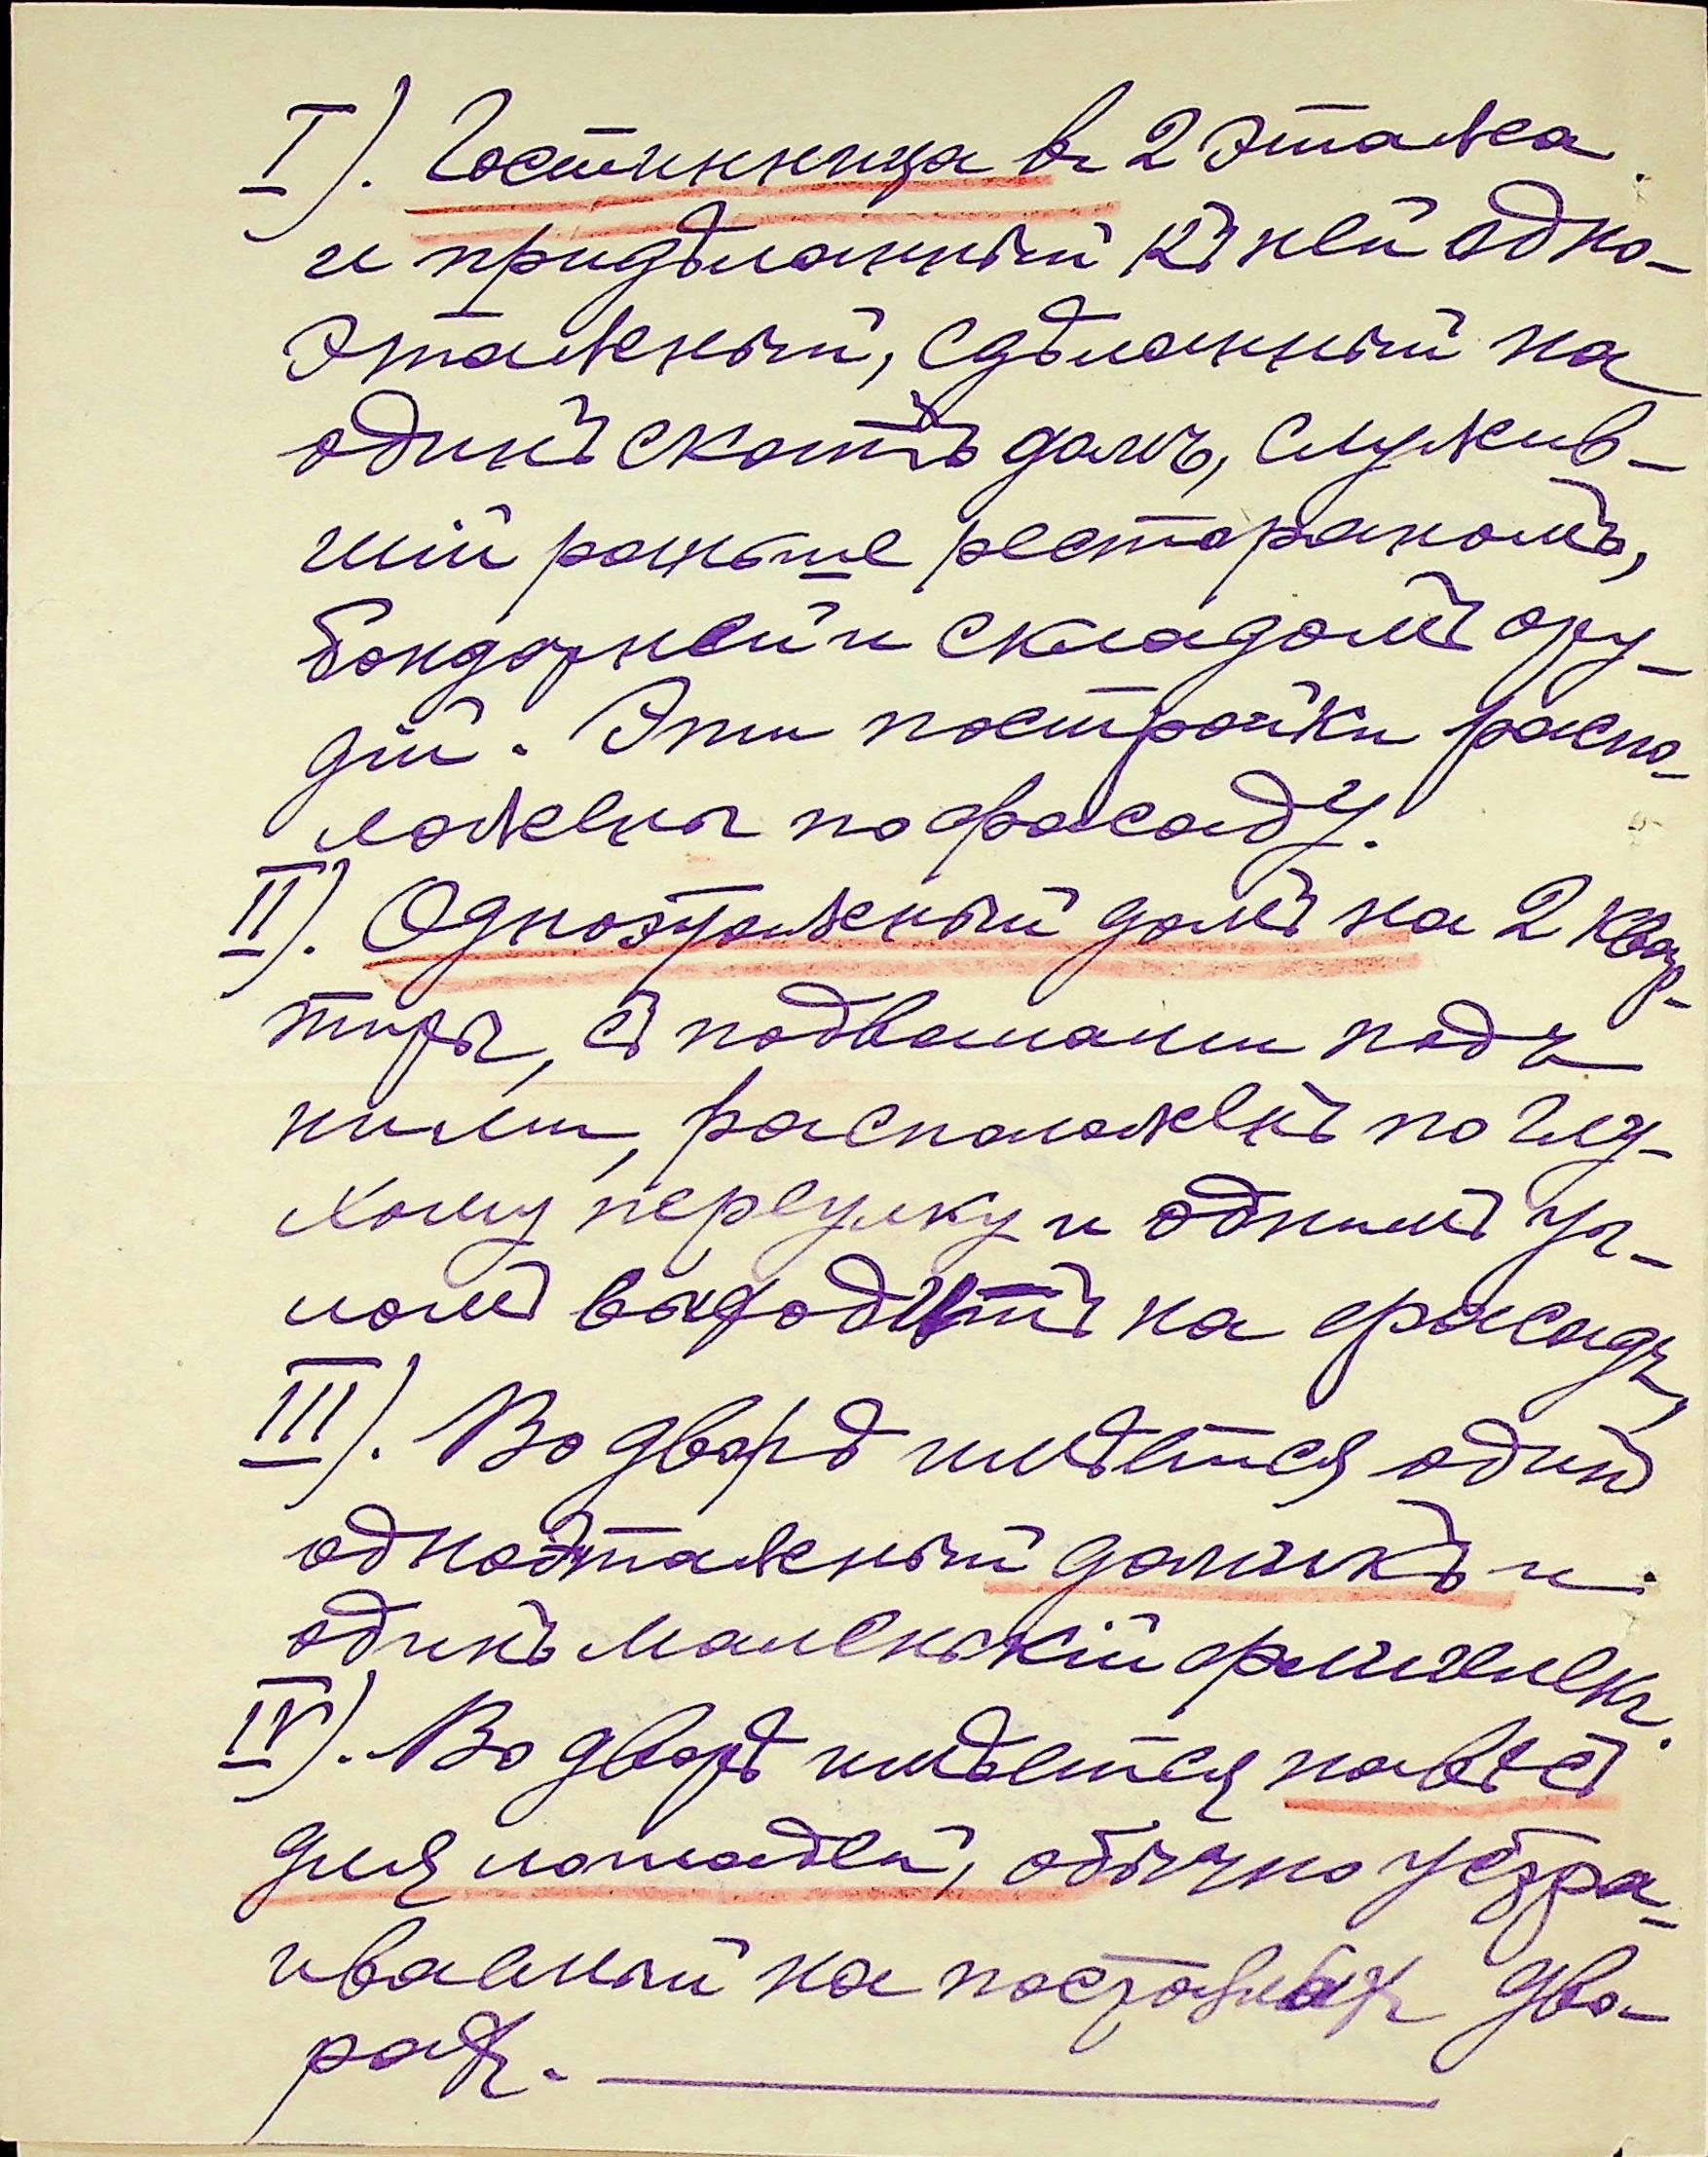 I). Гостинница въ 2 этажа
и придѣланный къ ней одно-
этажный, сдѣланный на
одинъ скатъ домъ, служив-
шій раньше рестораномъ,
бондарней и складомъ ору-
дій. Эти постройки распо-
ложены по фасаду.
II). Одноэтажный домъ на 2 квар-
тиры, съ подвалами подъ
ними, расположенъ по глу-
хому переулку и однимъ уг-
ломъ выходитъ на фасадъ,
III). Во дворѣ имѣется одинъ
одноэтажный домикъ и
одинъ маленькій флигелекъ.
IV). Во дворѣ имѣется навѣсъ
для лошадей, обычно устра-
иваемый на постоялыхъ дво-
рахъ.